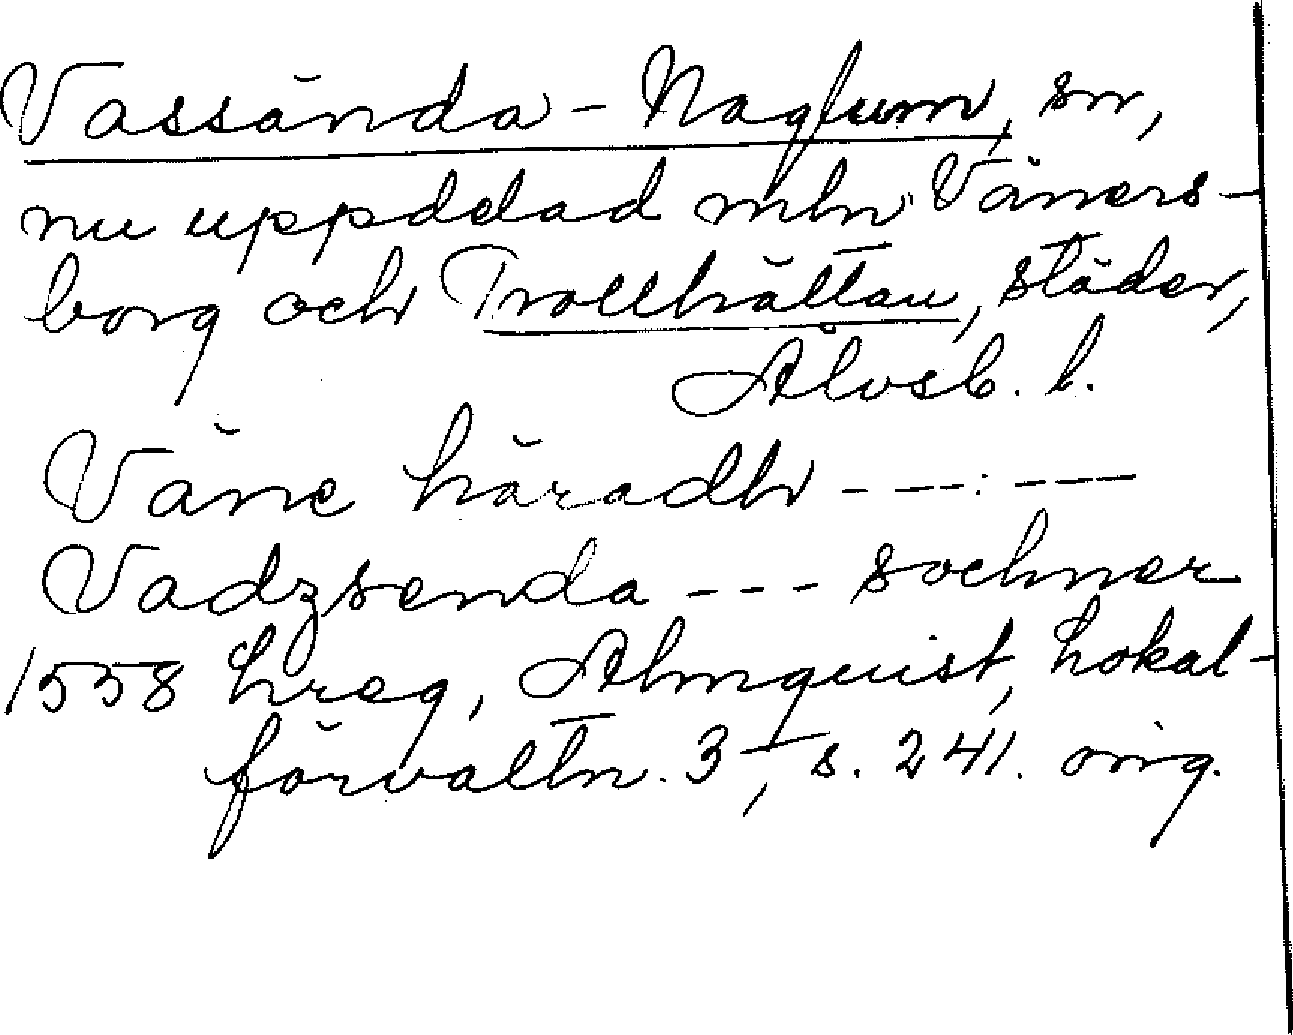 Vassända-Naglum, sn,
nu uppdelad mln Väners-
borg och Trollhättan, städer,
Älvsb. l.
Väne häradh - - - : - - -
Vadzsenda - - - sochner
1558 hreg, Almquist, Lokal-
förvaltn. 3, s. 241. orig.